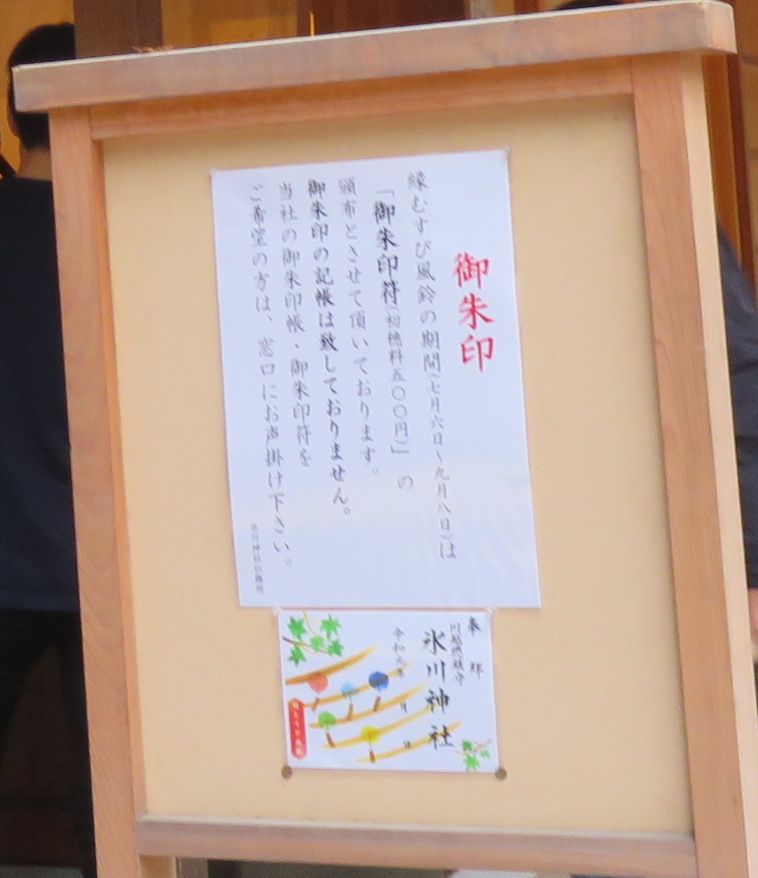 御朱印
縁むすび風鈴の期間(七月六日~九月八日)は
「御朱印符(初穂料五〇〇円)」の
頒布とさせて頂いております。
御朱印の記帳は致しておりません。
当社の御朱印帳・御朱印符を
ご希望の方は、窓口にお声掛け下さい。
氷川神社社務所
奉拝
川越総鎮守
氷川神社
令和元年 月 日